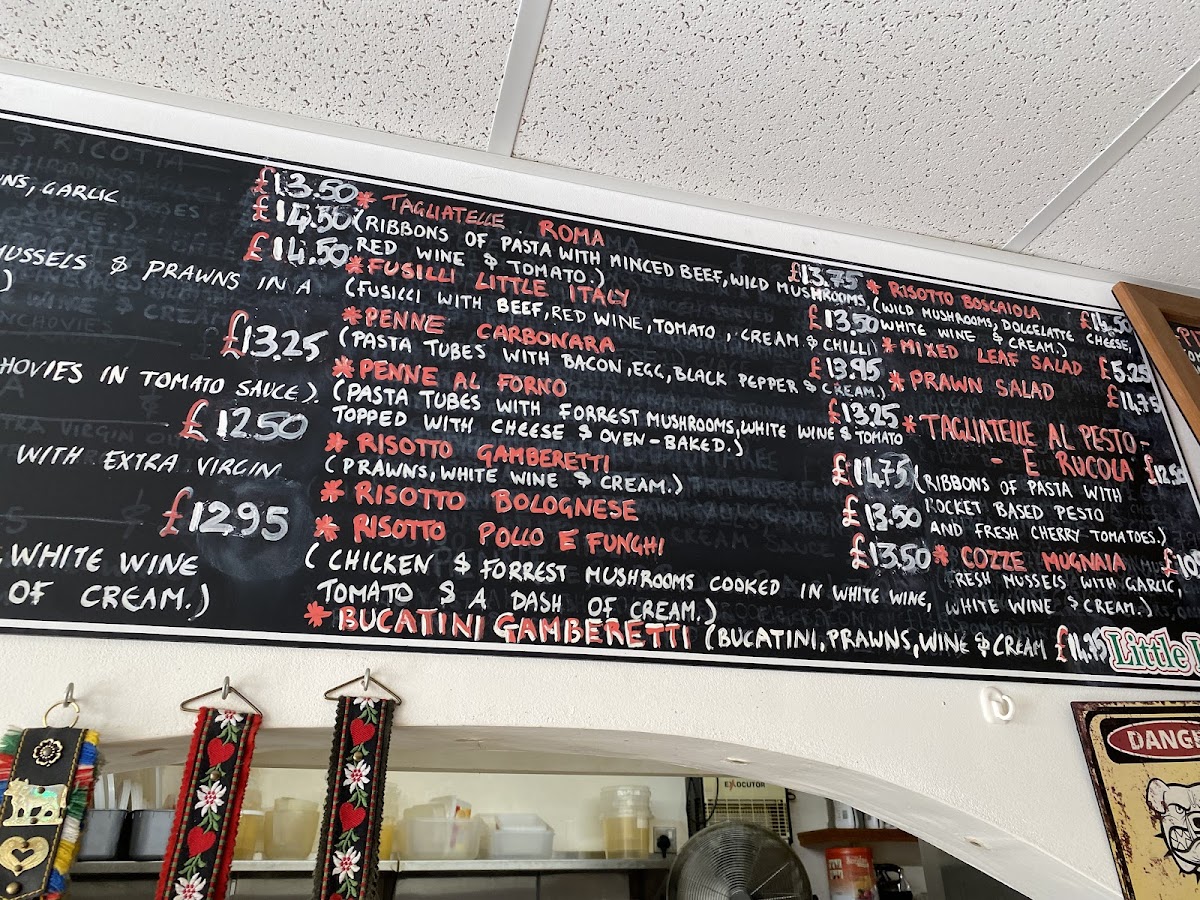 & RICOTTA
£13.50
NS, GARLIC
£14.50
£14.50
MUSSELS & PRAWNS IN A
)
£13.25
HOVIES IN TOMATO SAUCE).
£12.50
WITH EXTRA VIRGIN
£12.95
, WHITE WINE
OF CREAM.)
* TAGLIATELLE ROMA
(RIBBONS OF PASTA WITH MINCED BEEF, WILD MUSHROOMS,
RED WINE & TOMATO.) £13.75
* FUSILLI LITTLE ITALY
(FUSILLI WITH BEEF, RED WINE, TOMATO, CREAM & CHILLI) £13.50
* PENNE CARBONARA
(PASTA TUBES WITH BACON, EGG, BLACK PEPPER & CREAM.) £13.95
* PENNE AL FORNO
(PASTA TUBES WITH FORREST MUSHROOMS, WHITE WINE & TOMATO £13.25
TOPPED WITH CHEESE & OVEN-BAKED.)
* RISOTTO GAMBERETTI
(PRAWNS, WHITE WINE & CREAM.) £14.75
* RISOTTO BOLOGNESE £13.50
* RISOTTO POLLO E FUNGHI £13.50
(CHICKEN & FORREST MUSHROOMS COOKED IN WHITE WINE,
TOMATO & A DASH OF CREAM.)
* BUCATINI GAMBERETTI (BUCATINI, PRAWNS, WINE & CREAM £14.95
* RISOTTO BOSCAIOLA
(WILD MUSHROOMS, DOLCELATTE CHEESE, £14.50
WHITE WINE & CREAM.)
* MIXED LEAF SALAD £5.25
* PRAWN SALAD £11.75
* TAGLIATELLE AL PESTO -
- E RUCOLA £12.50
(RIBBONS OF PASTA WITH
ROCKET BASED PESTO
AND FRESH CHERRY TOMATOES.)
* COZZE MUGNAIA £10
FRESH MUSSELS WITH GARLIC,
WHITE WINE & CREAM.)
Little
DANG
EXOCUTOR